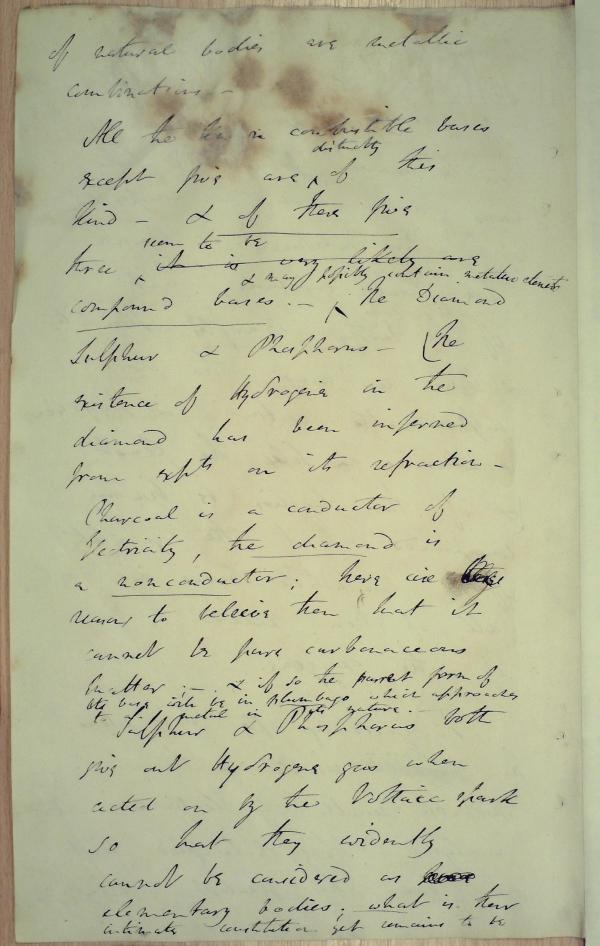 of natural bodies are metallic
combinations –
All the known combustible bases
distinctly
except five are of this
kind – & of these five
seem to be
three it is very likely are
& may possibly contain metallic elements
compound bases. – The Diamond
Sulphur & Phosphorus – The
existence of Hydrogene in the
diamond has been inferred
from expts on its refraction –
Charcoal is a conductor of
Electricity, the diamond is
a nonconductor; here are
reasons to beleive then that it
cannot be pure carbonaceous
matter. – & if so the purest form of
its base will be in plumbago which approaches
to a metal in its nature. –
Sulphur & Phosphorus both
give out Hydrogene gas when
acted on by the Voltaic spark
so that they evidently
cannot be considered as
elementary bodies; what is their
intimate constitution yet remains to be